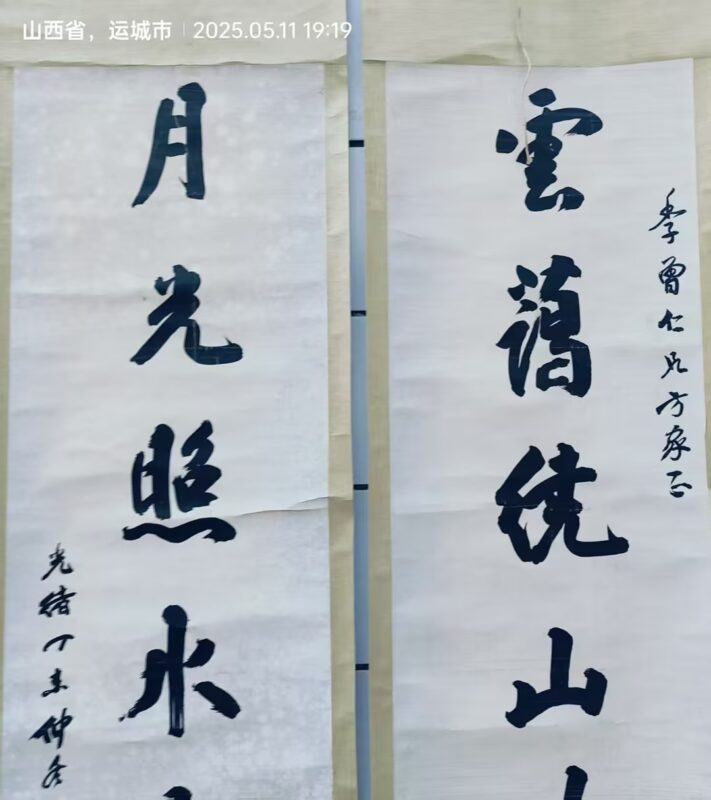 山西省，运城市 | 2025.05.11 19:19
季曾仁兄方家正
雲藹绕山
月光照水
光緒丁未仲冬